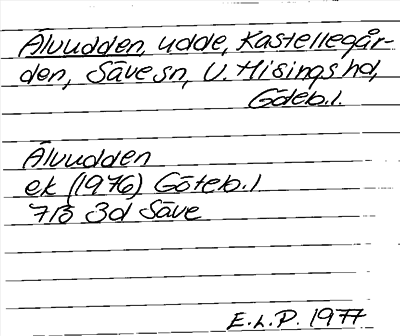 Älvudden, udde, Kastellegår-
den, Säve sn, V. Hisings hd,
Göteb.l.
Älvudden
ek (1976) Göteb.l
7B 3d Säve
E.L.P. 1977